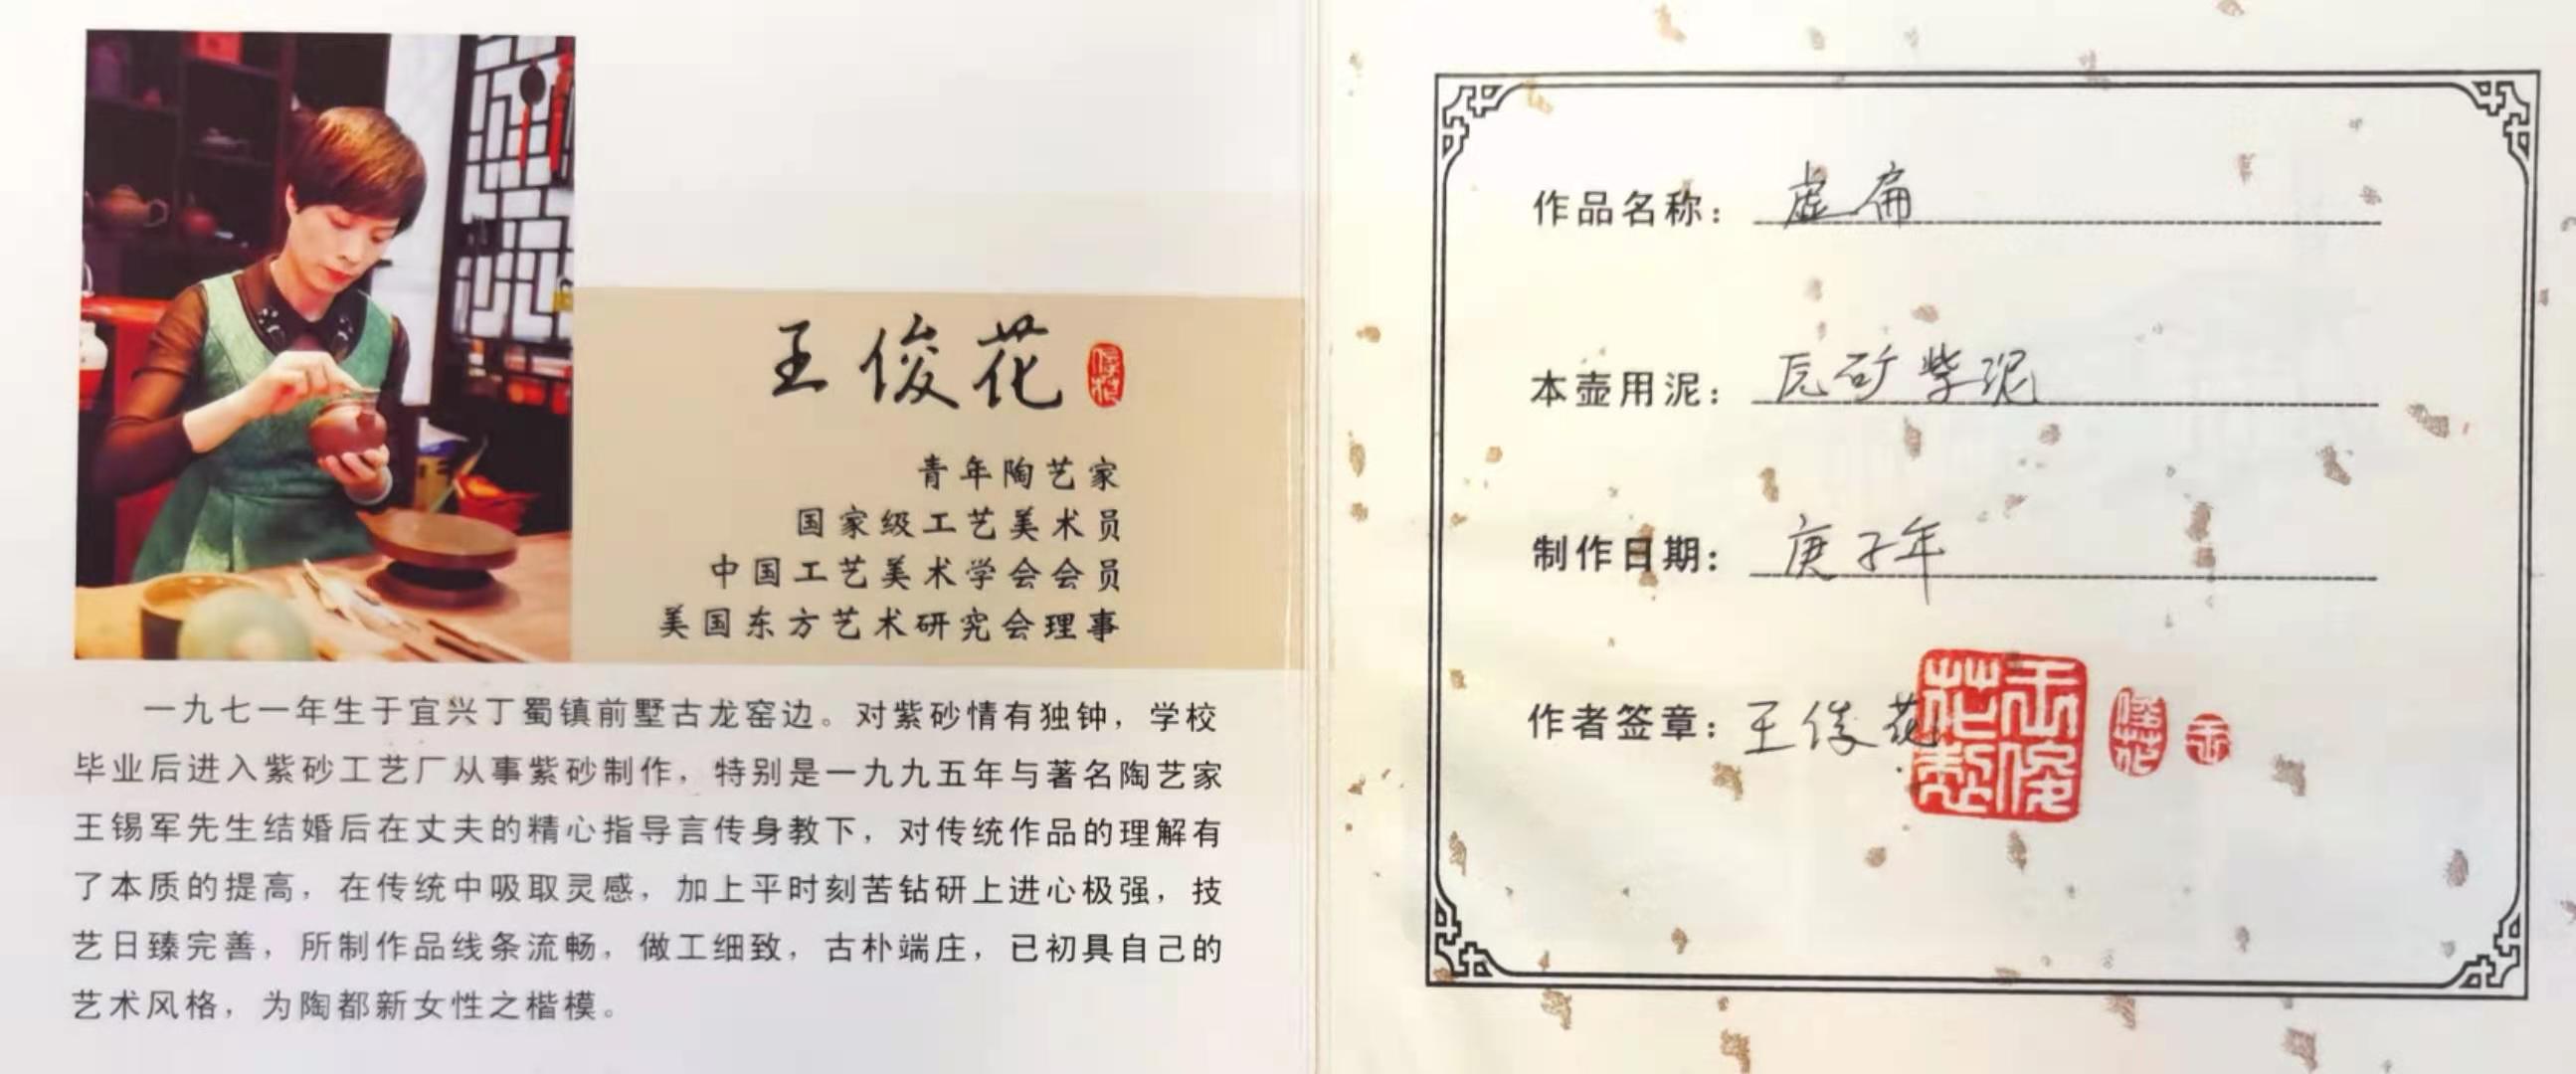 王俊花
俊花
青年陶艺家
国家级工艺美术员
中国工艺美术学会会员
美国东方艺术研究会理事
一九七一年生于宜兴丁蜀镇前墅古龙窑边。对紫砂情有独钟，学校
毕业后进入紫砂工艺厂从事紫砂制作，特别是一九九五年与著名陶艺家
王锡军先生结婚后在丈夫的精心指导言传身教下，对传统作品的理解有
了本质的提高，在传统中吸取灵感，加上平时刻苦钻研上进心极强，技
艺日臻完善，所制作品线条流畅，做工细致，古朴端庄，已初具自己的
艺术风格，为陶都新女性之楷模。
作品名称：虚扁
本壶用泥：原矿紫泥
制作日期：庚子年
作者签章：王俊花
王俊花製
俊花
王